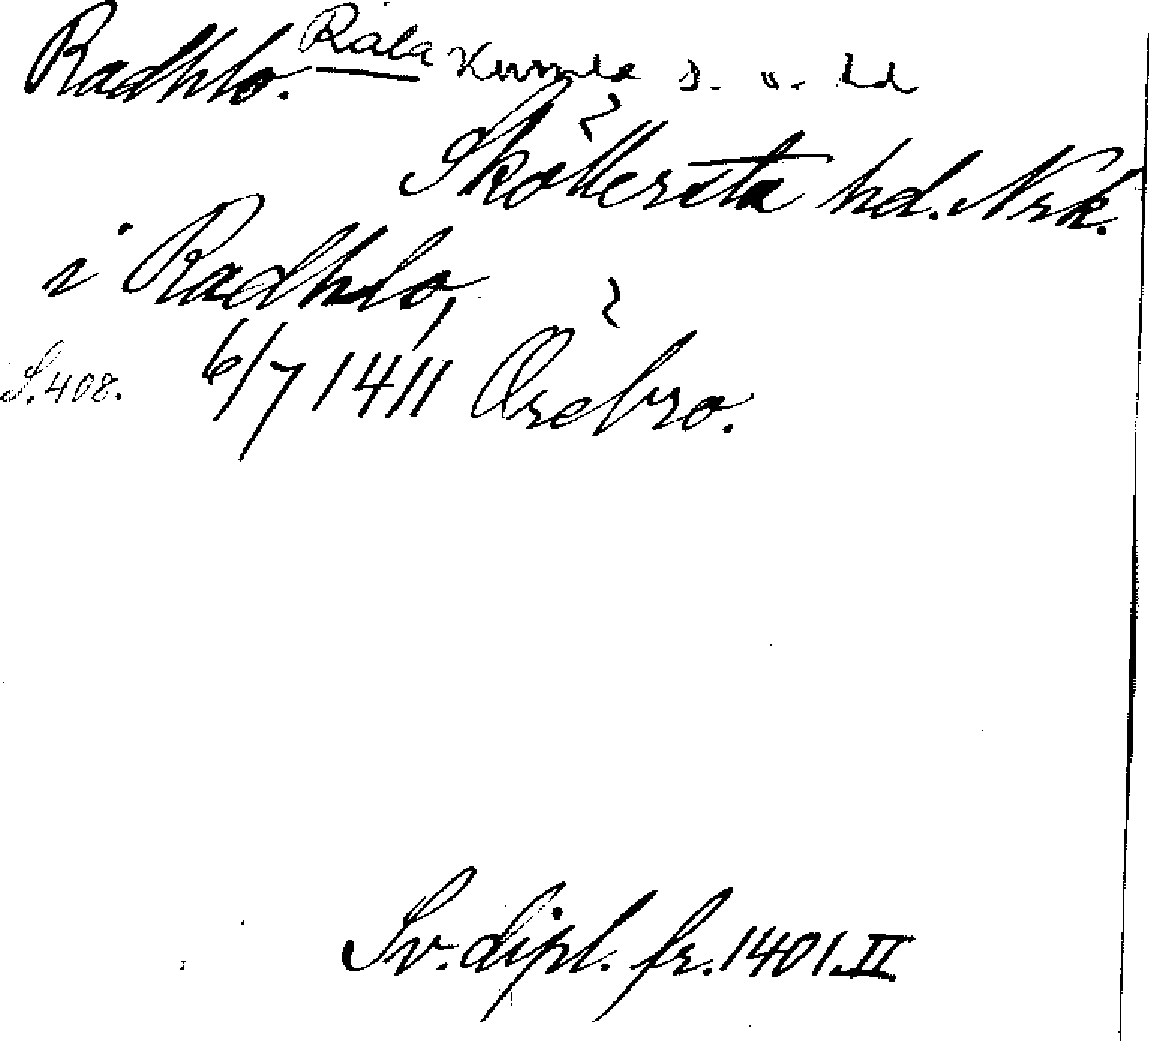 Radhlo. Rála Kumla s. o. hd
Sköllersta hd. Nrk.
i Radhlo,
S. 408. 6/7 1411 Örebro.
Sv. dipl. fr. 1401. II